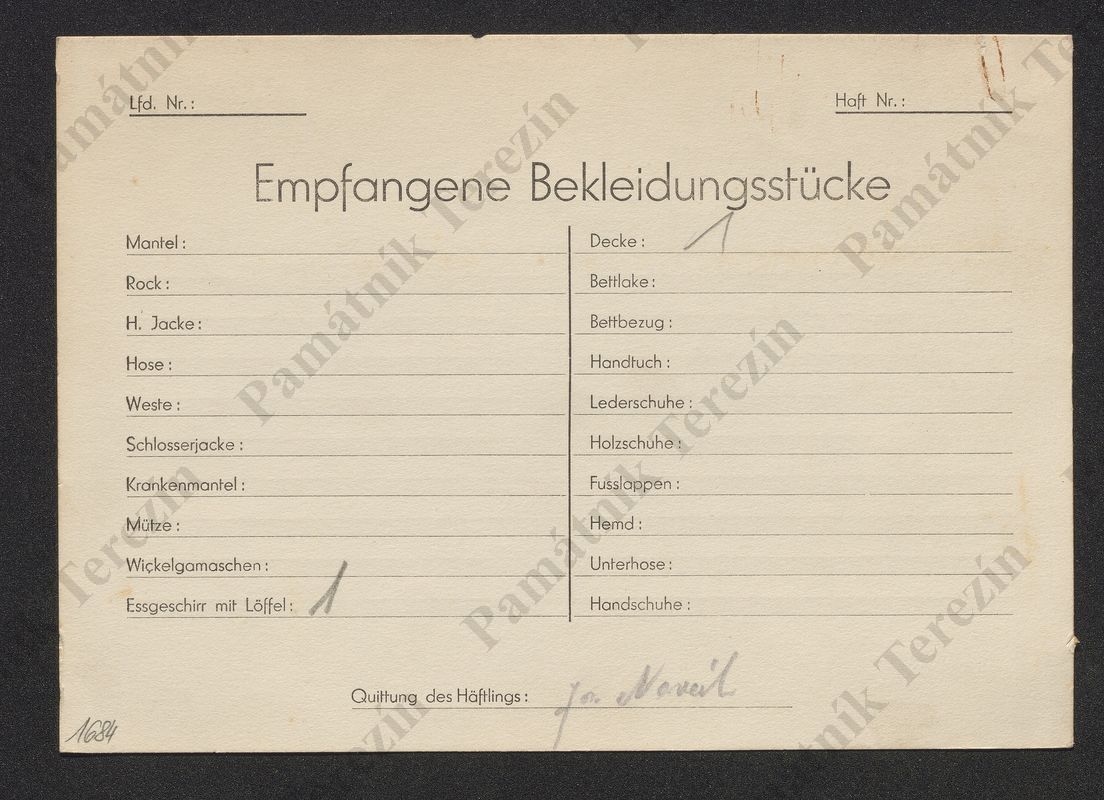 Lfd. Nr.:
Haft Nr.:
Empfangene Bekleidungsstücke
Mantel:
Rock:
H. Jacke:
Hose:
Weste:
Schlosserjacke:
Krankenmantel:
Mütze:
Wickelgamaschen:
Essgeschirr mit Löffel: 1
Decke: 1
Bettlake:
Bettbezug:
Handtuch:
Lederschuhe:
Holzschuhe:
Fusslappen:
Hemd:
Unterhose:
Handschuhe:
Quittung des Häftlings:
1684
Památník Terezín